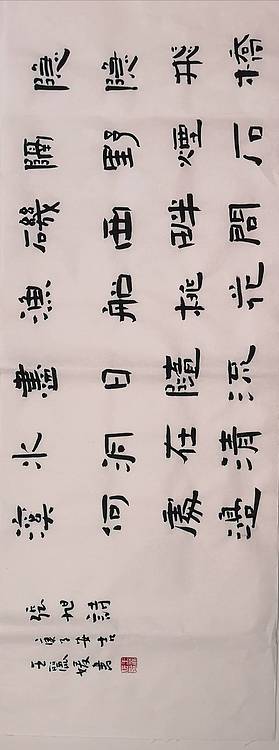 隱隱飛橋
隔野煙石
磯西畔問
漁船桃花
盡日隨流
水洞在清
溪河處邊
張旭詩
書